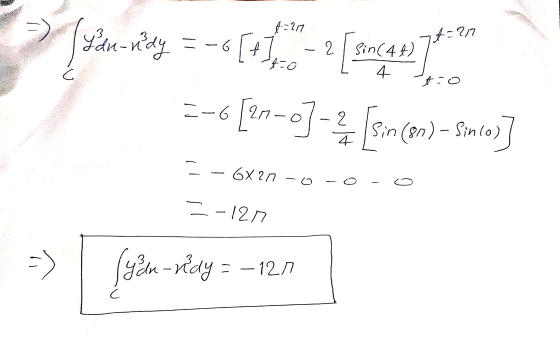 => ∫_C y³dx - x³dy = -6 [t]_{t=0}^{t=2π} - 2 [sin(4t)/4]_{t=0}^{t=2π}
= -6 [2π - 0] - 2/4 [sin(8π) - sin(0)]
= -6×2π - 0 - 0 - 0
= -12π
=> ∫_C y³dx - x³dy = -12π